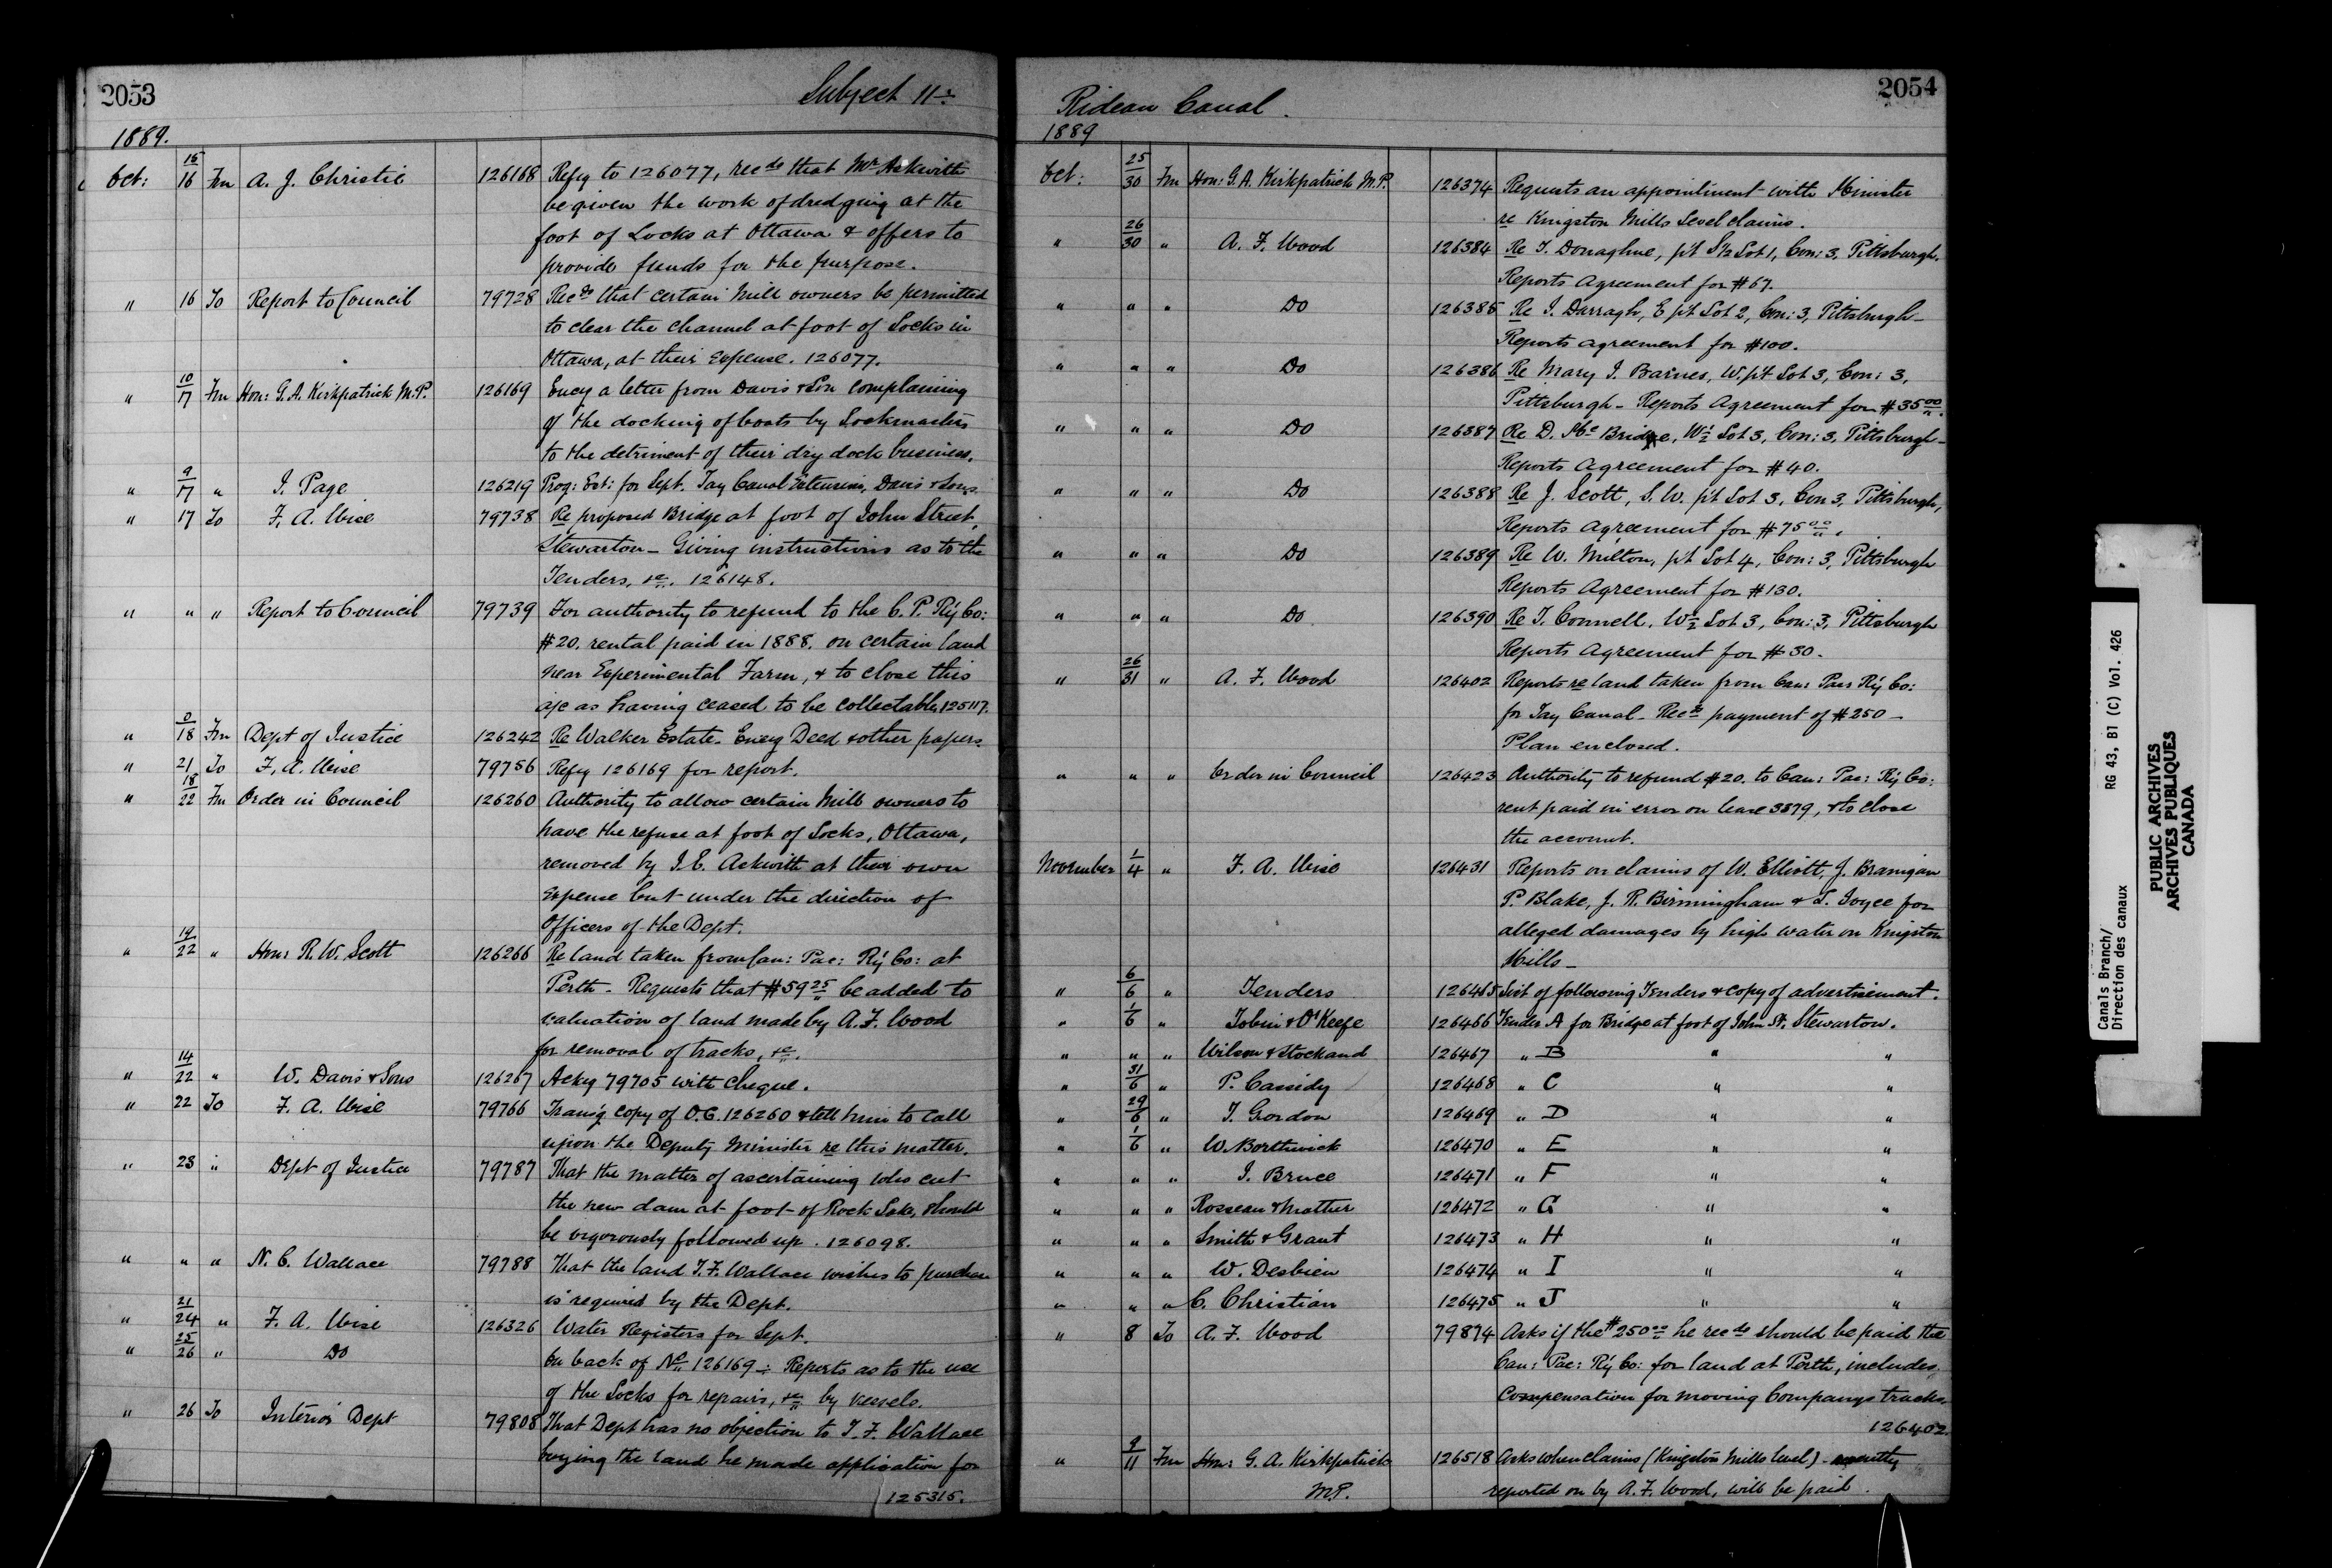 2053
Subject 11:
1889.
Oct: 15/16 Fm A. J. Christie 126168 Refg to 126077, recds that Mr Askwith
be given the work of dredging at the
foot of Locks at Ottawa & offers to
provide funds for the purpose.
" 16 To Report to Council 79728 Recds that certain Mill owners be permitted
to clear the channel at foot of Locks in
Ottawa, at their expense. 126077.
" 10/17 Fm Hon: G. A. Kirkpatrick M.P. 126169 Encg a letter from Davis & Son complaining
of the docking of boats by Lockmasters
to the detriment of their dry dock business.
" 9/17 " J. Page 126219 Prog: Est: for Sept. Tay Canal Extension, Davis & Sons.
" 17 To F. A. Wise 79738 Re proposed Bridge at foot of John Street,
Stewarton - Giving instructions as to the
Tenders, &c. 126148.
" " " Report to Council 79739 For authority to refund to the C. P. Ry Co:
$20. rental paid in 1888. on certain land
near Experimental Farm, & to close this
a/c as having ceased to be collectable, 125117.
" 18 Fm Dept of Justice 126242 Re Walker Estate. Encg Deed & other papers.
" 21 To F. A. Wise 79756 Refg 126169 for report.
" 18/22 Fm Order in Council 126260 Authority to allow certain Mill owners to
have the refuse at foot of Locks, Ottawa,
removed by J. E. Askwith at their own
expense but under the direction of
Officers of the Dept.
" 19/22 " Hon: R. W. Scott 126266 Re land taken from Can: Pac: Ry Co: at
Perth - Requests that $59 25 be added to
valuation of land made by A. F. Wood
for removal of tracks, &c.
" 14/22 " W. Davis & Sons 126267 Ackg 79705 with cheque.
" 22 To F. A. Wise 79766 Transg copy of O.C. 126260 & tell him to call
upon the Deputy Minister re this matter.
" 23 " Dept of Justice 79787 That the matter of ascertaining who cut
the new dam at foot of Rock Lake, should
be vigorously followed up. 126098.
" " " N. C. Wallace 79788 That the land T. F. Wallace wishes to purchase
is required by the Dept.
" 21/24 " F. A. Wise 126326 Water Registers for Sept.
" 25/26 " Do On back of No 126169 -: Reports as to the use
of the Locks for repairs, &c. by vessels.
" 26 To Interior Dept 79808 That Dept has no objection to T. F. Wallace
buying the land he made application for
125315.
2054
Rideau Canal.
1889
Oct: 25/30 Fm Hon: G. A. Kirkpatrick M.P. 126374 Requests an appointment with Minister
re Kingston Mills Level claims.
" 26/30 " A. F. Wood 126384 Re T. Donaghue, pt S 1/2 Lot 1, Con: 3, Pittsburgh.
Reports Agreement for $67.
" " " Do 126385 Re J. Darragh, E pt Lot 2, Con: 3, Pittsburgh -
Reports agreement for $100.
" " " Do 126386 Re Mary J. Barnes, W. pt Lot 3, Con: 3,
Pittsburgh - Reports Agreement for $35 00.
" " " Do 126387 Re D. McBridge, W 1/2 Lot 3, Con: 3, Pittsburgh -
Reports Agreement for $40.
" " " Do 126388 Re J. Scott, S. W. pt Lot 3, Con 3, Pittsburgh,
Reports Agreement for $75 00.
" " " Do 126389 Re W. Milton, pt Lot 4, Con: 3, Pittsburgh
Reports Agreement for $130.
" " " Do 126390 Re T. Connell, W 1/2 Lot 3, Con: 3, Pittsburgh
Reports Agreement for $30.
" 26/31 " A. F. Wood 126402 Reports re land taken from Can: Pac: Ry Co:
for Tay Canal - Recds payment of $250 -
Plan enclosed.
" " " Order in Council 126423 Authority to refund $20. to Can: Pac: Ry Co:
rent paid in error on lease 3879, & to close
the account.
November 1/4 " F. A. Wise 126431 Reports on claims of W. Elliott, J. Branigan
P. Blake, J. R. Birmingham & L. Joyce for
alleged damages by high water on Kingston
Mills -
" 6/6 " Tenders 126465 List of following Tenders & copy of advertisement.
" 1/6 " Tobin & O'Keefe 126466 Tender A for Bridge at foot of John St. Stewarton.
" " " Wilson & Stockand 126467 " B " "
" 31/6 " P. Cassidy 126468 " C " "
" 29/6 " T. Gordon 126469 " D " "
" 1/6 " W. Borthwick 126470 " E " "
" " " J. Bruce 126471 " F " "
" " " Rosseau & Mather 126472 " G " "
" " " Smith & Grant 126473 " H " "
" " " W. Desbien 126474 " I " "
" " " C. Christian 126475 " J " "
" 8 To A. F. Wood 79874 Asks if the $250 00 he recds should be paid the
Can: Pac: Ry Co: for land at Perth, includes
compensation for moving Companys tracks.
126402.
" 9/11 Fm Hon: G. A. Kirkpatrick 126518 Asks when claims (Kingston Mills level) - recently
M.P. reported on by A. F. Wood, will be paid.
Canals Branch/
Direction des canaux
RG 43, B1 (C) Vol. 426
PUBLIC ARCHIVES
ARCHIVES PUBLIQUES
CANADA